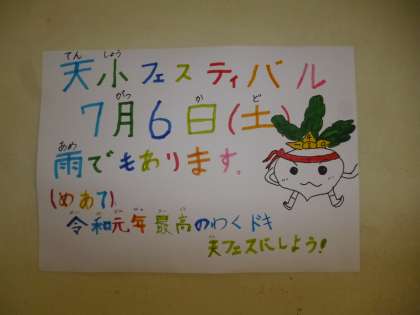 てん しょう
天小フェスティバル
がつ か ど
7月6日(土)
あめ
雨でもあります。
(めあて)
令和元年最高のわくドキ
天フェスにしよう!